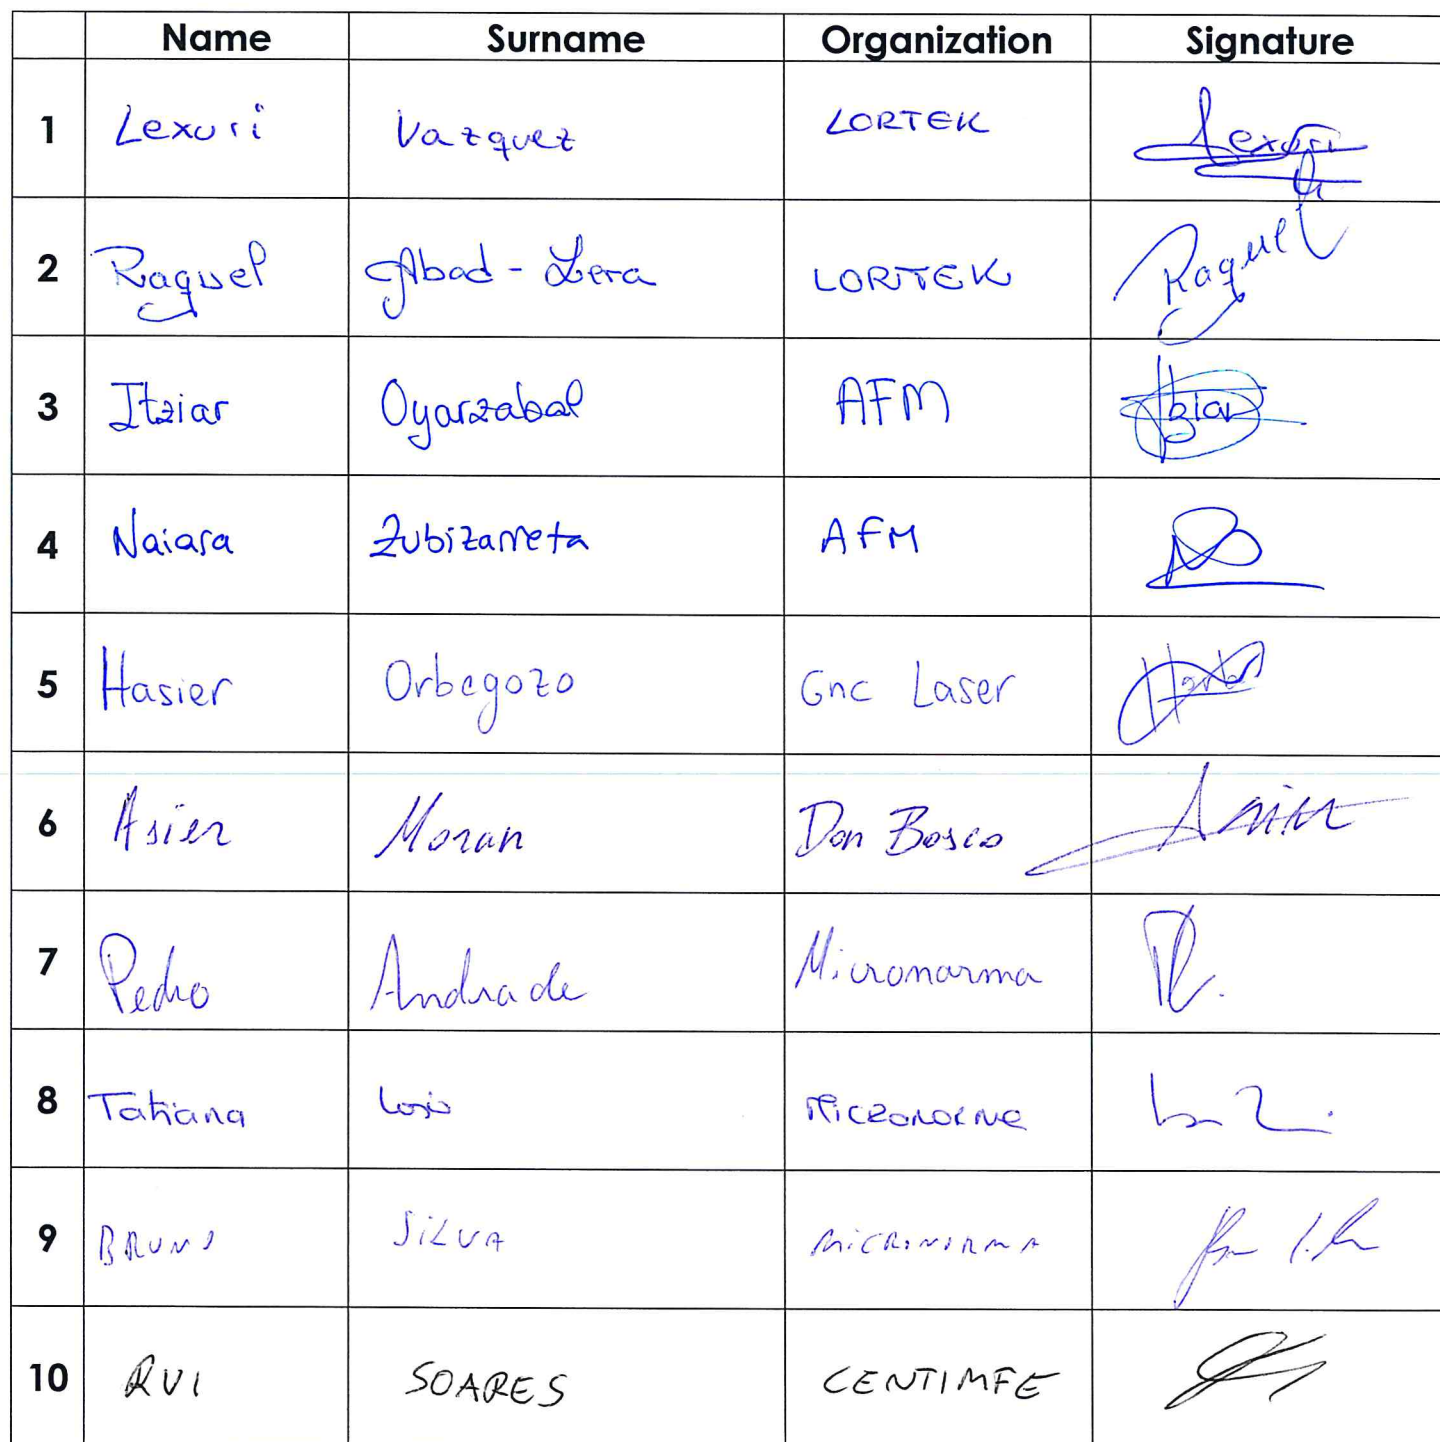 Name Surname Organization Signature
1 Lexuri Vazquez LORTEK Lexuri
2 Raquel Abad-Lera LORTEK Raquel
3 Itziar Oyarzabal AFM Itziar
4 Naiara Zubizarreta AFM
5 Hasier Orbegozo Gnc Laser
6 Asier Moran Don Bosco Asier
7 Pedro Andrade Micronorma
8 Tatiana MICRONORMA
9 BRUNO SILVA MICRONORMA
10 RUI SOARES CENTIMFE